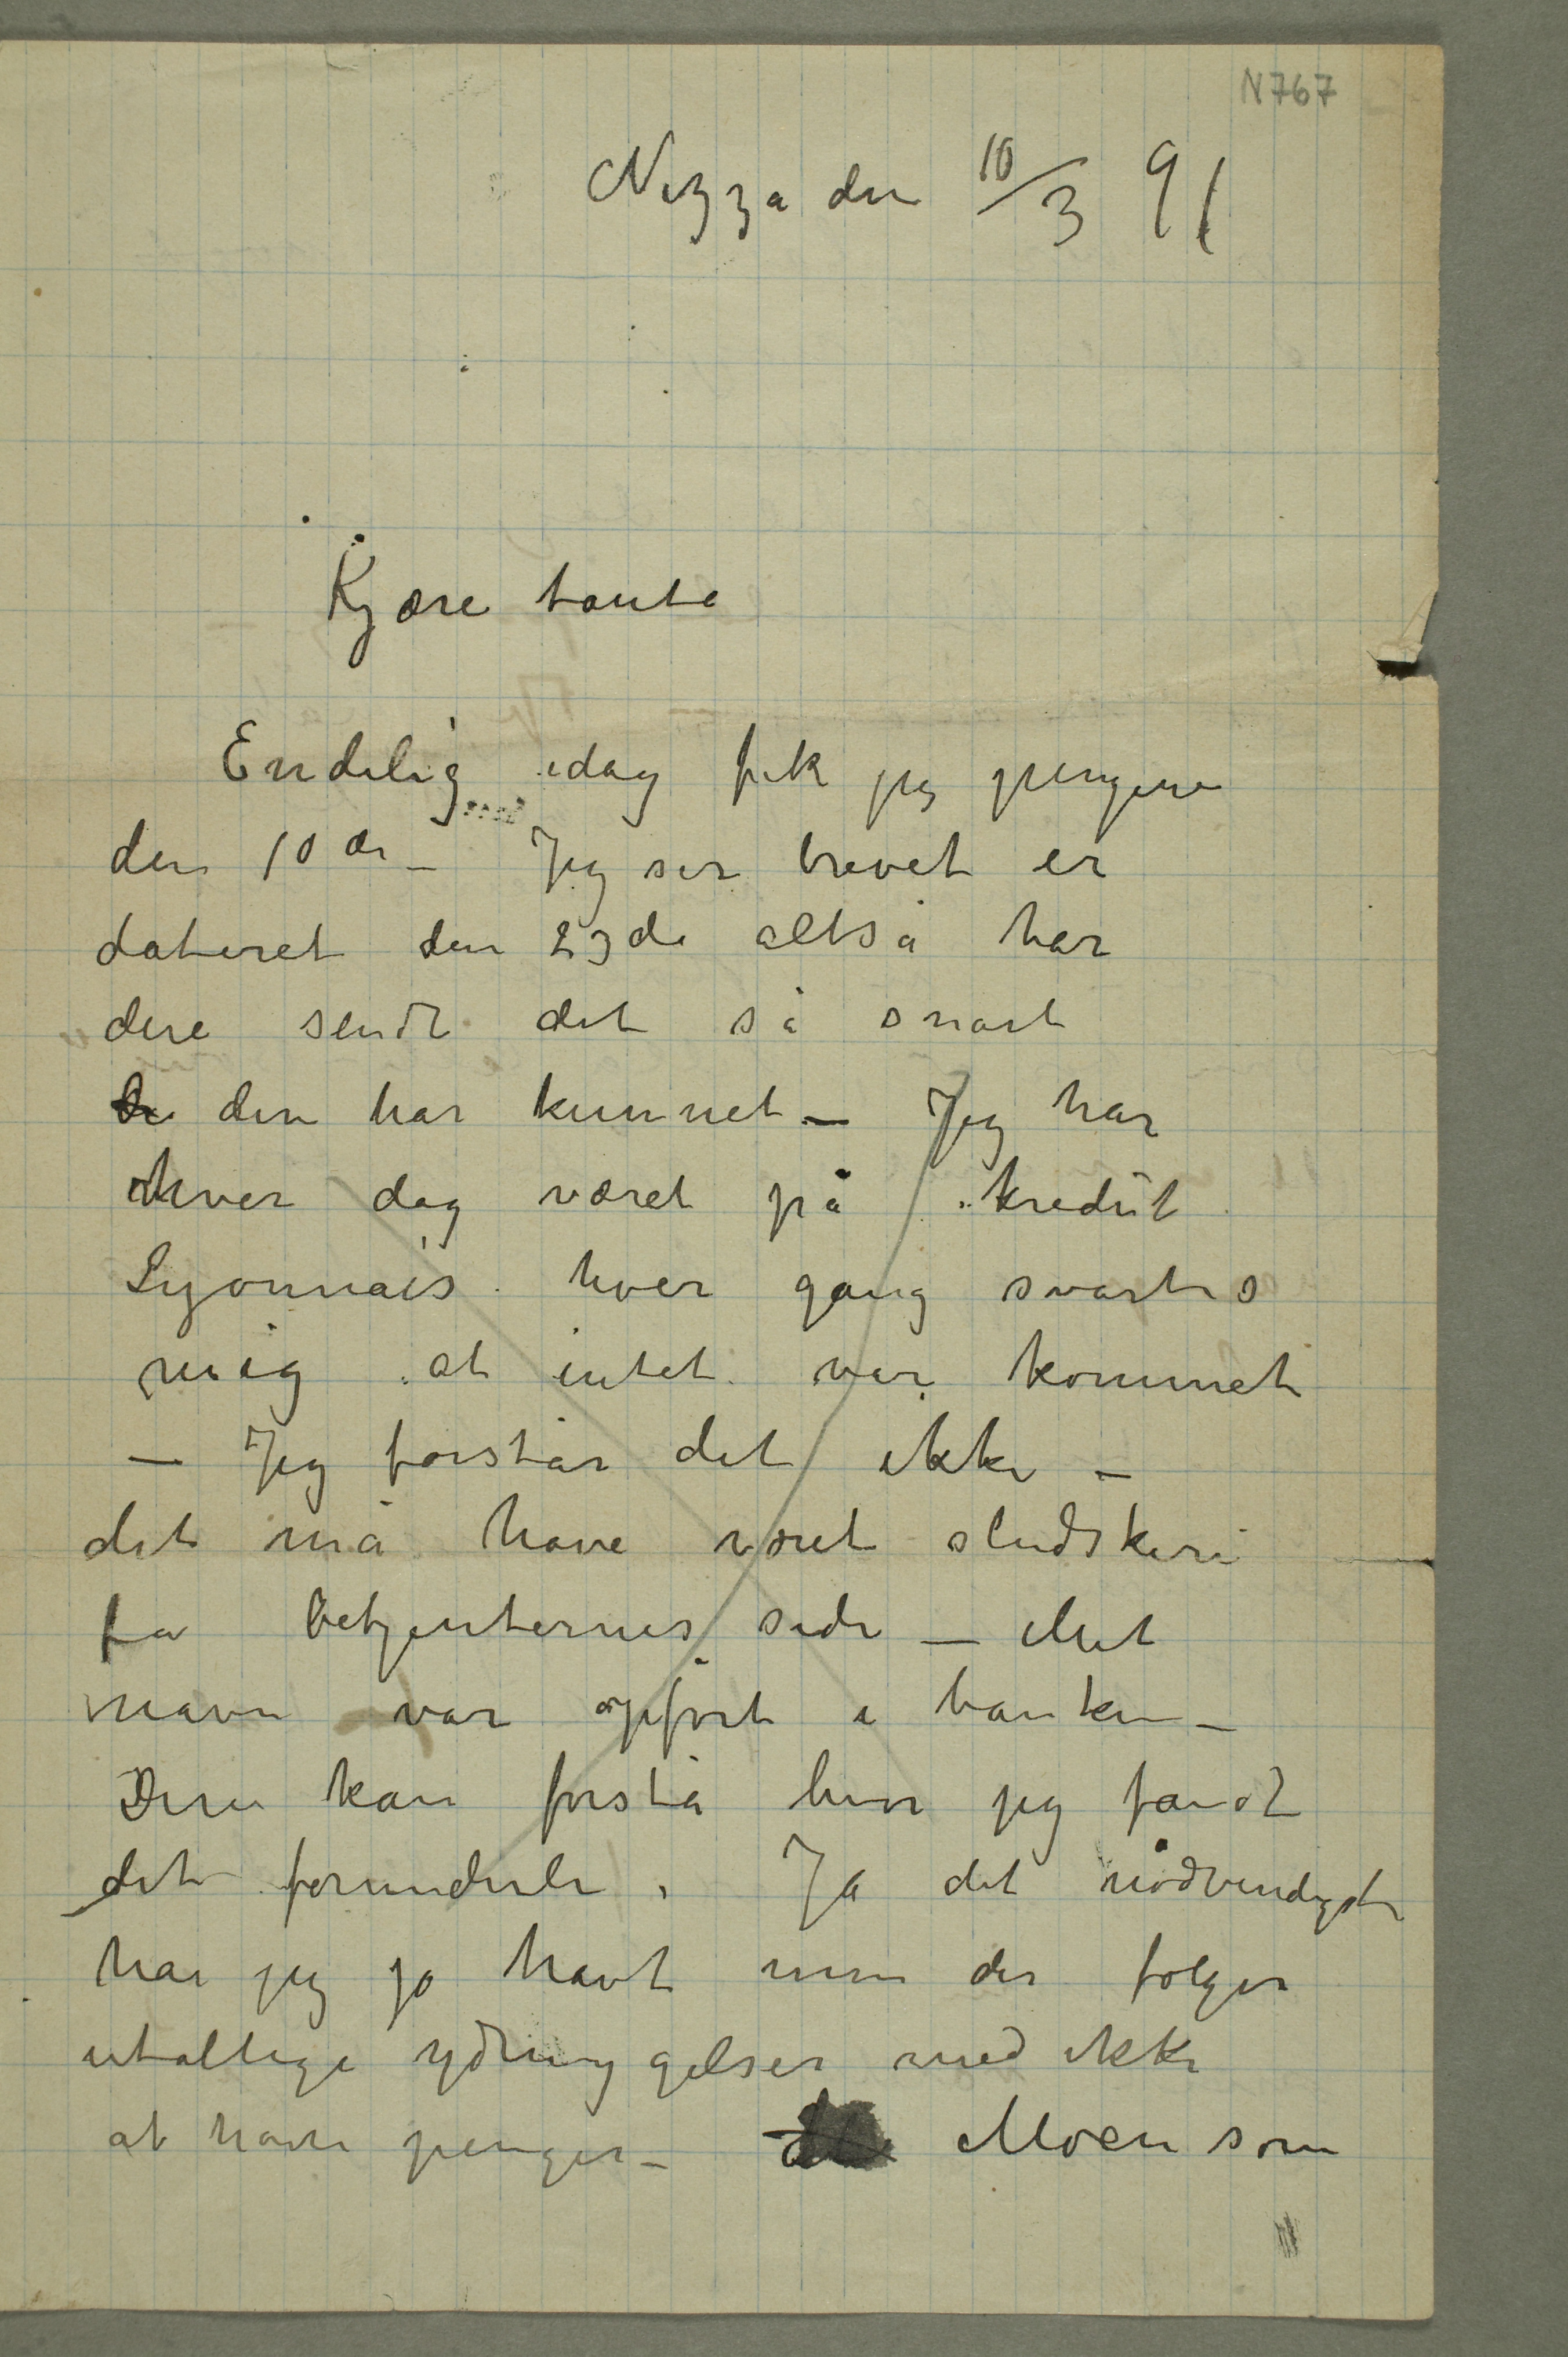 N767
Nizza den 10/3 91
Kjære tante
Endelig idag fik jeg pengene
den 10de – Jeg ser brevet er
dateret den 23de altså har
dere sendt det så snart
de den har kunnet – Jeg har
hver dag været på kredit
Lyonnais hver gang svartes
mig at intet var kommet
– Jeg forstår det ikke –
det må have været sludskeri
fra betjenternes side – Mit
navn var opført i banken –
Dere kan forstå hvor jeg fandt
det forunderli. Ja det nødvendigste
har jeg jo havt men der følger
utallige ydmygelser med ikke
at have penger – Moen som